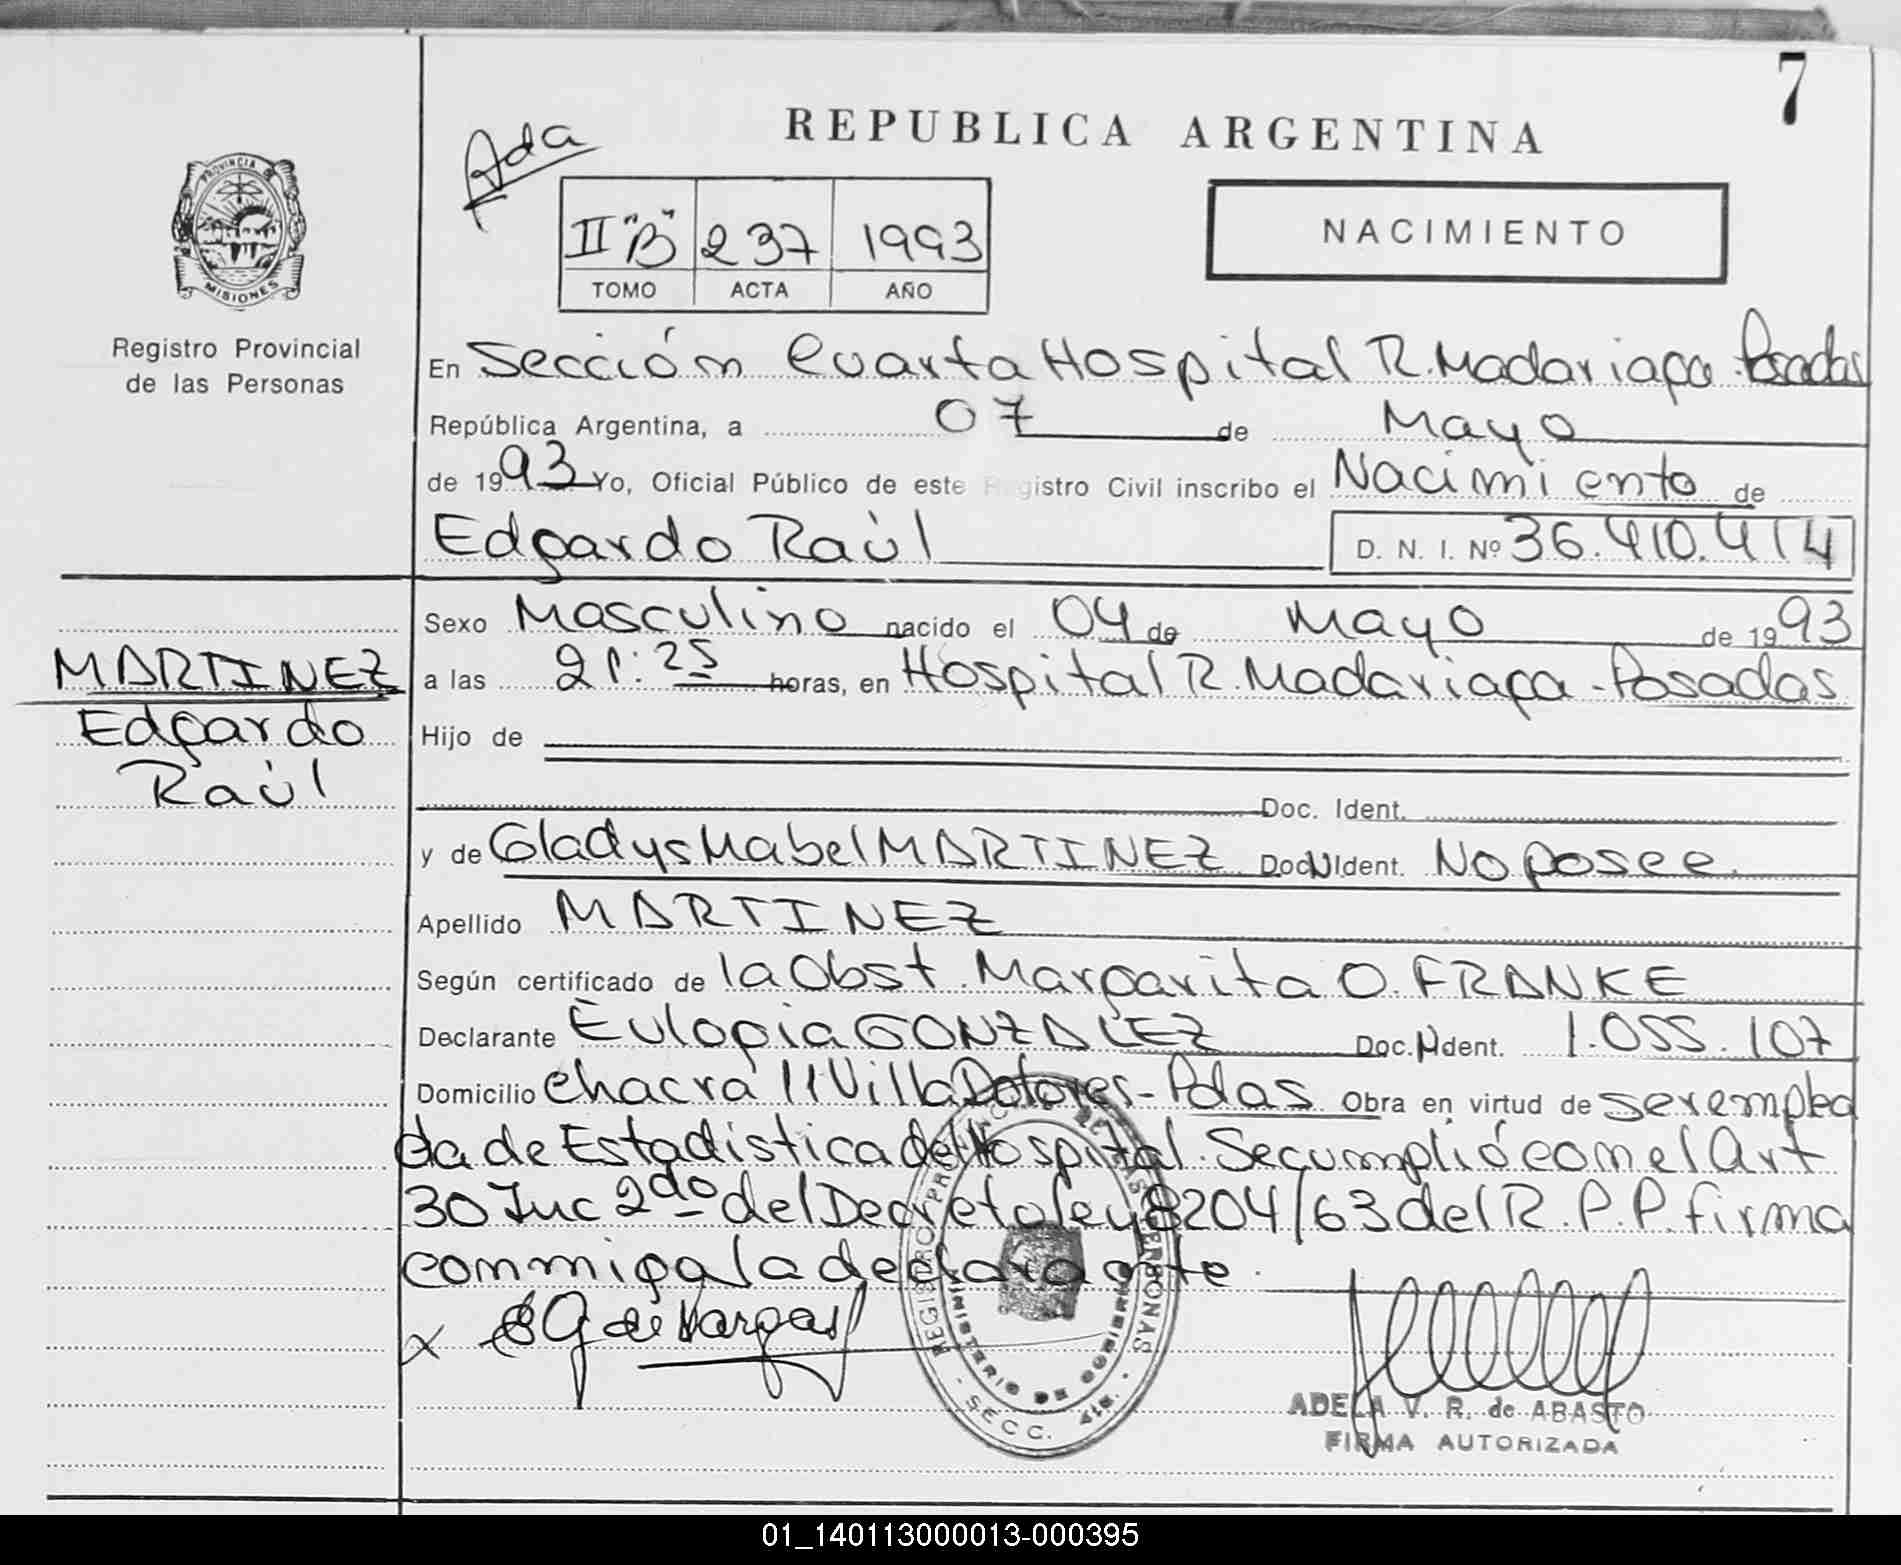 7
REPUBLICA ARGENTINA
Ada
PROVINCIA
MISIONES
II "B" 237 1993
TOMO ACTA AÑO
NACIMIENTO
Registro Provincial
de las Personas
En Sección Cuarta Hospital R. Madariaga - Posadas
República Argentina, a 07 de Mayo
de 1993 Yo, Oficial Público de este Registro Civil inscribo el Nacimiento de
Edgardo Raúl D. N. I. Nº 36.410.414
Sexo Masculino nacido el 04 de Mayo de 1993
MARTINEZ
Edgardo
Raúl
a las 21:25 horas, en Hospital R. Madariaga - Posadas
Hijo de
Doc. Ident.
y de Gladys Mabel MARTINEZ Doc. N Ident. No posee.
Apellido MARTINEZ
Según certificado de la Obst. Margarita O. FRANKE
Declarante Eulogia GONZALEZ Doc. N Ident. 1.055.107
Domicilio Chacra 11 Villa Dolores - Pdas Obra en virtud de ser emplea
da de Estadística del Hospital. Se cumplió con el Art
30 Inc 2do del Decreto ley 8204/63 del R. P. P. firma
conmigo la declarante.
x E G de Vargas
REGISTRO PROVINCIAL DE LAS PERSONAS
MINISTERIO DE GOBIERNO
SECC. 4ta.
ADELA V. R. de ABASTO
FIRMA AUTORIZADA
01_140113000013-000395